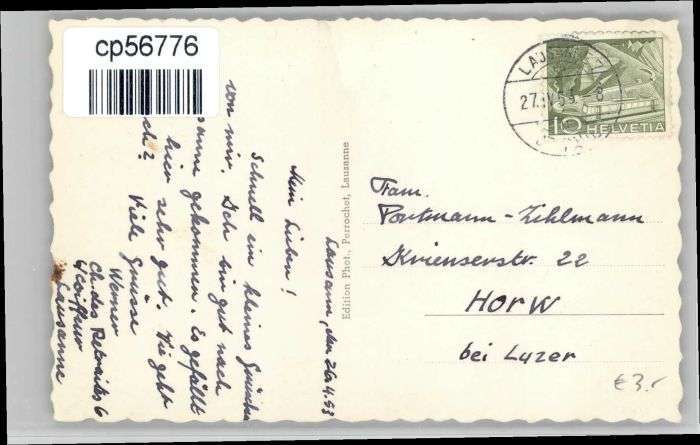 cp56776
LAUSANNE
27.IV.53 8
10 HELVETIA
Lausanne, den 26.4.53
Mein Lieben!
Schnell ein kleines Grüsschen
von mir. Ich bin gut nach
sanne gekommen. Es gefällt
hier sehr gut. Wie geht
ch? Viele Grüsse
Werner
Coiffeur
Ch. des Retraites 6
Lausanne
Edition Phot., Perrochet, Lausanne
Fam.
Portmann-Zihlmann
Krienserstr. 22
Horw
bei Luzer
€ 3.-